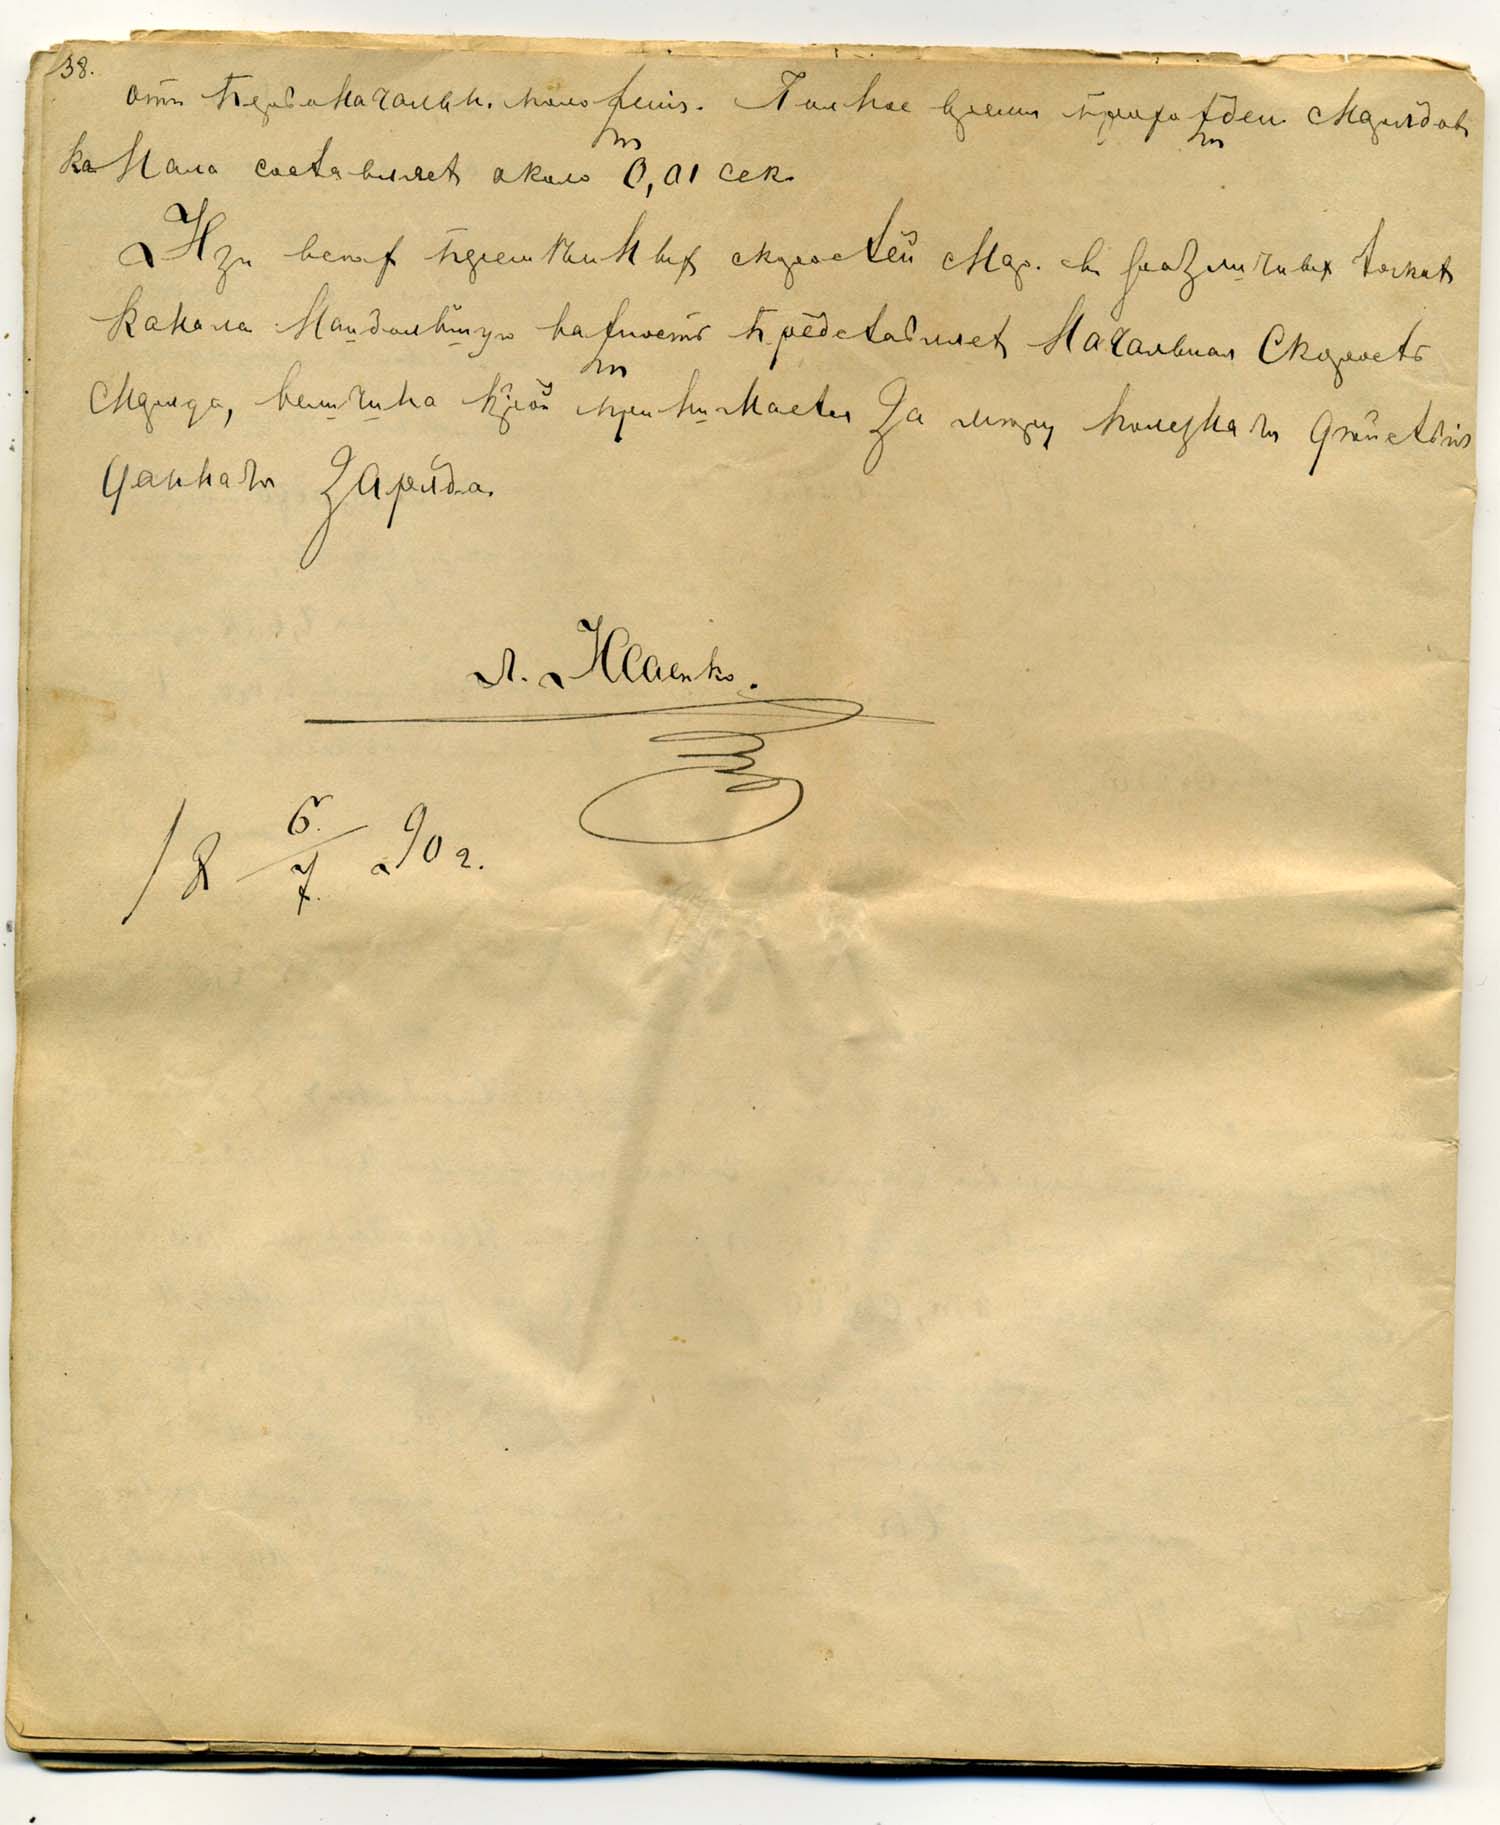 38.
отъ первоначальн. положенія. Полное время прохожден. снарядовъ
канала составляетъ около 0,01 сек.
Изъ всѣхъ перемѣнныхъ скоростей снар. въ различныхъ точкахъ
канала наибольшую важность представляетъ начальная скорость
снаряда, величина крой принимается за мѣру полезнаго дѣйствія
даннаго заряда.
Л. Исаенко.
18 6/7 90 г.